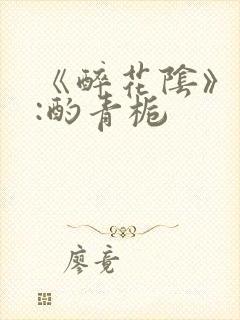 《醉花陰》
:酌青栀
廖竟